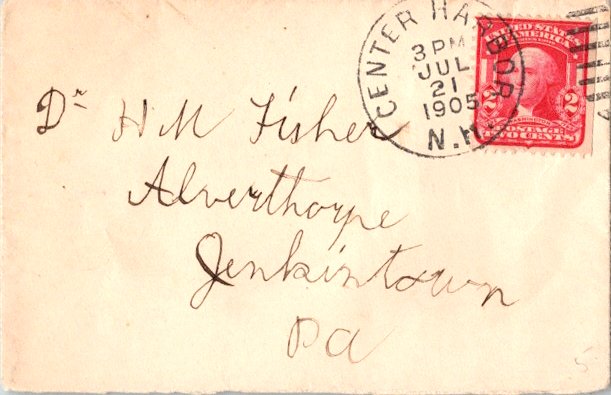 CENTER HARBOR
3 PM
JUL
21
1905
N.H.
UNITED STATES
OF AMERICA
2 2
POSTAGE
TWO CENTS
Dr H M Fisher
Alverthorpe
Jenkintown
Pa
5